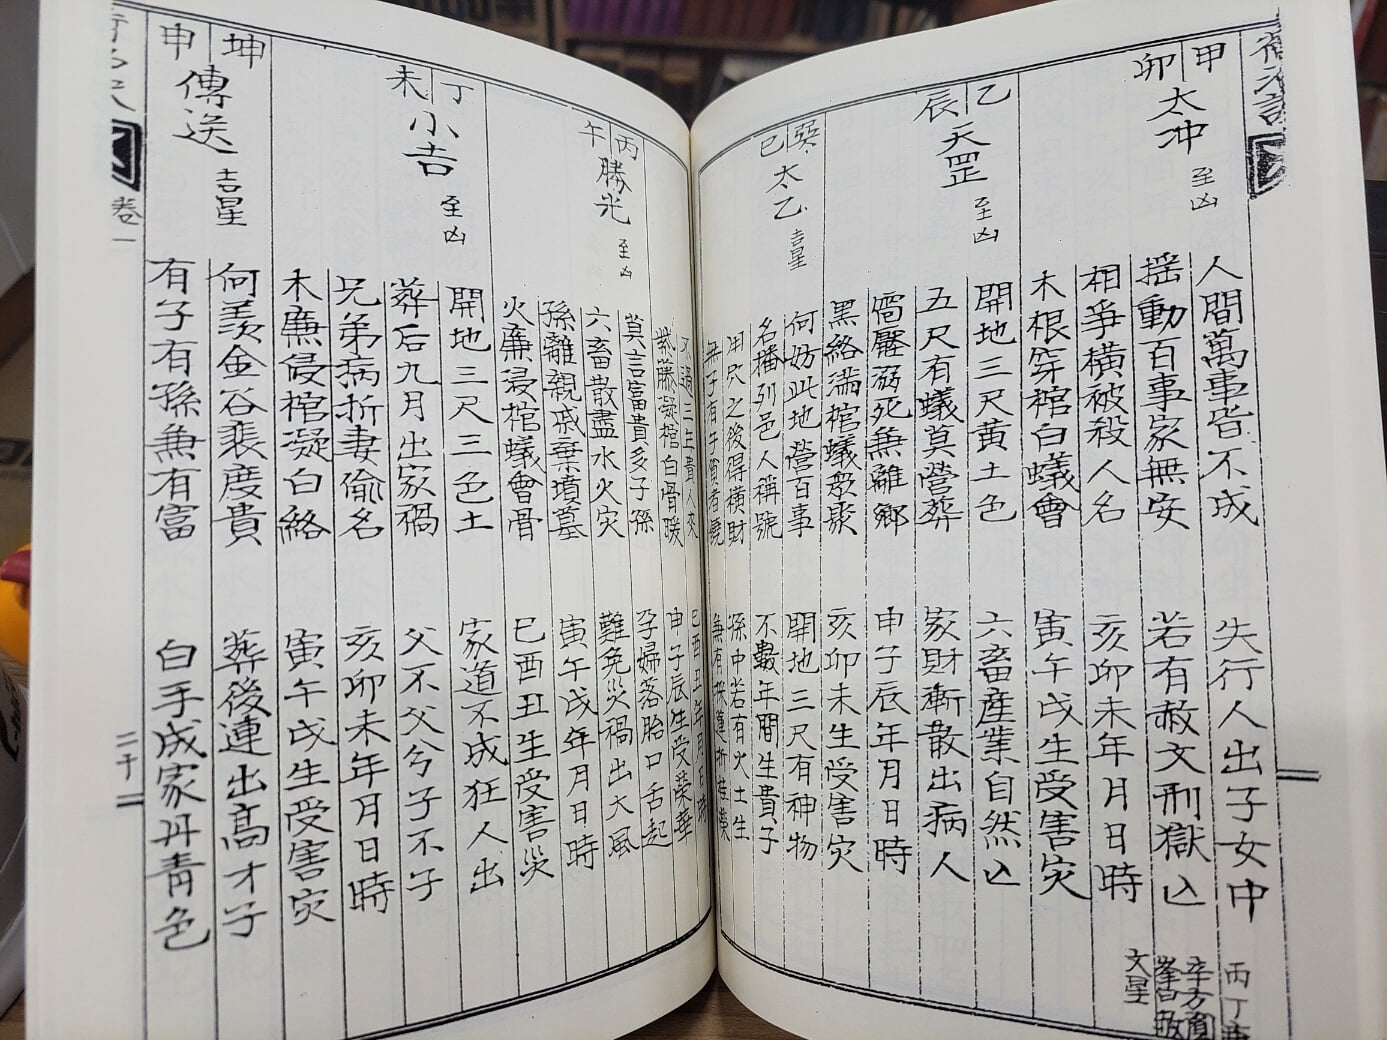 甲卯 太冲 至凶
人間萬事皆不成 失行人出子女中
搖動百事家無安 若有赦文刑獄亡
相爭橫被殺人名 亥卯未年月日時
木根穿棺白蟻會 寅午戌生受害灾
文星
乙辰 天罡 至凶
開地三尺黃土色 六畜產業自然亡
五尺有蟻莫營葬 家財漸散出病人
溺死無離鄉 申子辰年月日時
黑絡滿棺蟻眾聚 亥卯未生受害灾
癸巳 太乙 吉星
何妨此地營百事 開地三尺有神物
名播列邑人稱號 不數年間生貴子
用穴之後得橫財 孫中若有火土生
無子有子貧者饒
丙午 勝光 至凶
紫藤凝棺白骨暖 申子辰生受榮華
莫言富貴多子孫 孕婦落胎口舌起
六畜散盡水火灾 難免災禍出大風
孫離親戚棄墳墓 寅午戌年月日時
火廉浸棺蟻會骨 巳酉丑生受害災
丁未 小吉 至凶
開地三尺三色土 家道不成狂人出
葬后九月出家禍 父不父兮子不子
兄弟病折妻偷名 亥卯未年月日時
木廉侵棺凝白絡 寅午戌生受害灾
坤申 傳送 吉星
何羨金谷裴度貴 葬後連出高才子
有子有孫兼有富 白手成家丹青色
卷一
二十